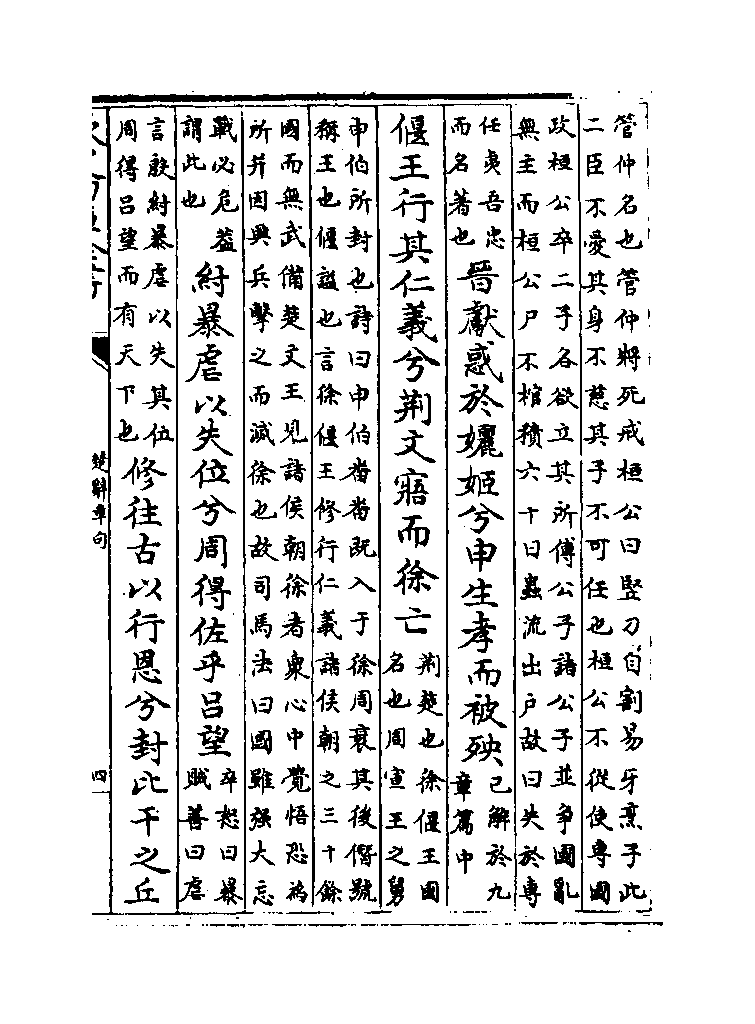 管仲名也管仲將死戒桓公曰豎刁自割易牙烹子此
二臣不愛其身不慈其子不可任也桓公不從使專國
政桓公卒二子各欲立其所傅公子諸公子並爭國亂
無主而桓公尸不棺積六十日蟲流出戶故曰失於專
任夷吾忠
而名著也
晉獻惑於孋姬兮申生孝而被殃
已解於九
章篇中
偃王行其仁義兮荆文寤而徐亡
荆楚也徐偃王國
名也周宣王之舅
申伯所封也詩曰申伯畨畨既入于徐周衰其後僭號
稱王也偃諡也言徐偃王修行仁義諸侯朝之三十餘
國而無武備楚文王見諸侯朝徐者衆心中覺悟恐為
所并因興兵擊之而滅徐也故司馬法曰國雖强大忘
戰必危葢
謂此也
紂暴虐以失位兮周得佐乎呂望
卒怒曰暴
賊善曰虐
言殷紂暴虐以失其位
周得呂望而有天下也
修往古以行恩兮封比干之丘
楚辭章句
四